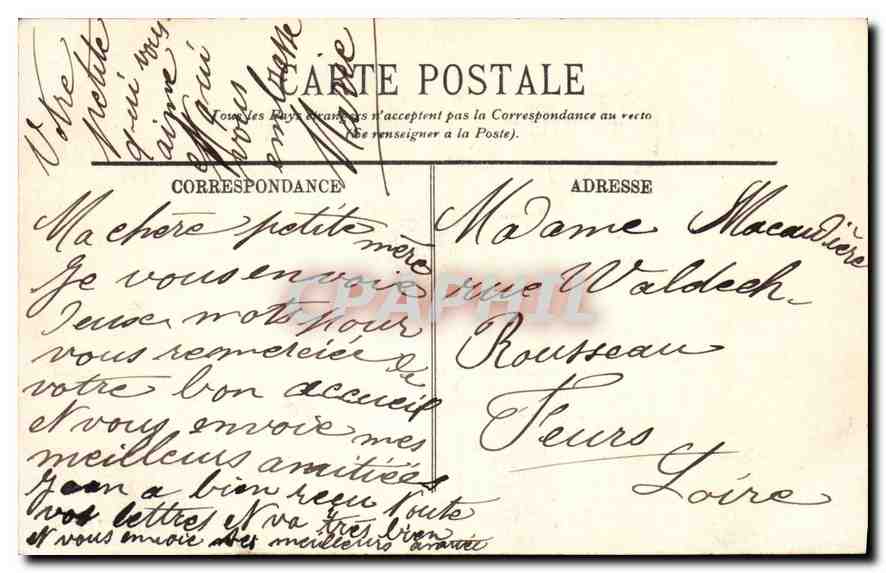 Votre
petite
qui vous
aime
et qui
vous
embrasse
CARTE POSTALE
Tous les Pays étrangers n'acceptent pas la Correspondance au recto
(Se renseigner a la Poste).
CORRESPONDANCE
Ma chère petite mère
Je vous envoie
deux mots pour
vous remerciée de
votre bon accueil
et vous envoie mes
meilleurs amitiées
Jean a bien reçu toute
vos lettres et va très bien
et vous envoie ses meilleurs amitié
ADRESSE
Madame Macaudière
rue Waldech
Rousseau
Feurs
Loire
CPAPHIL